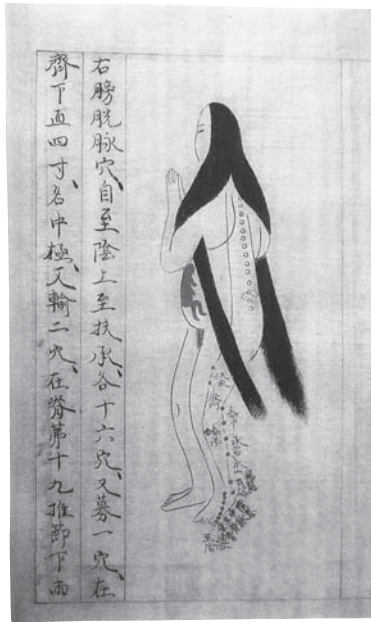 右膀胱脉穴、自至陰上至扶承、各十六穴、又募一穴、在
齊下直四寸、名中極、又輸二穴、在脊第十九推節下兩